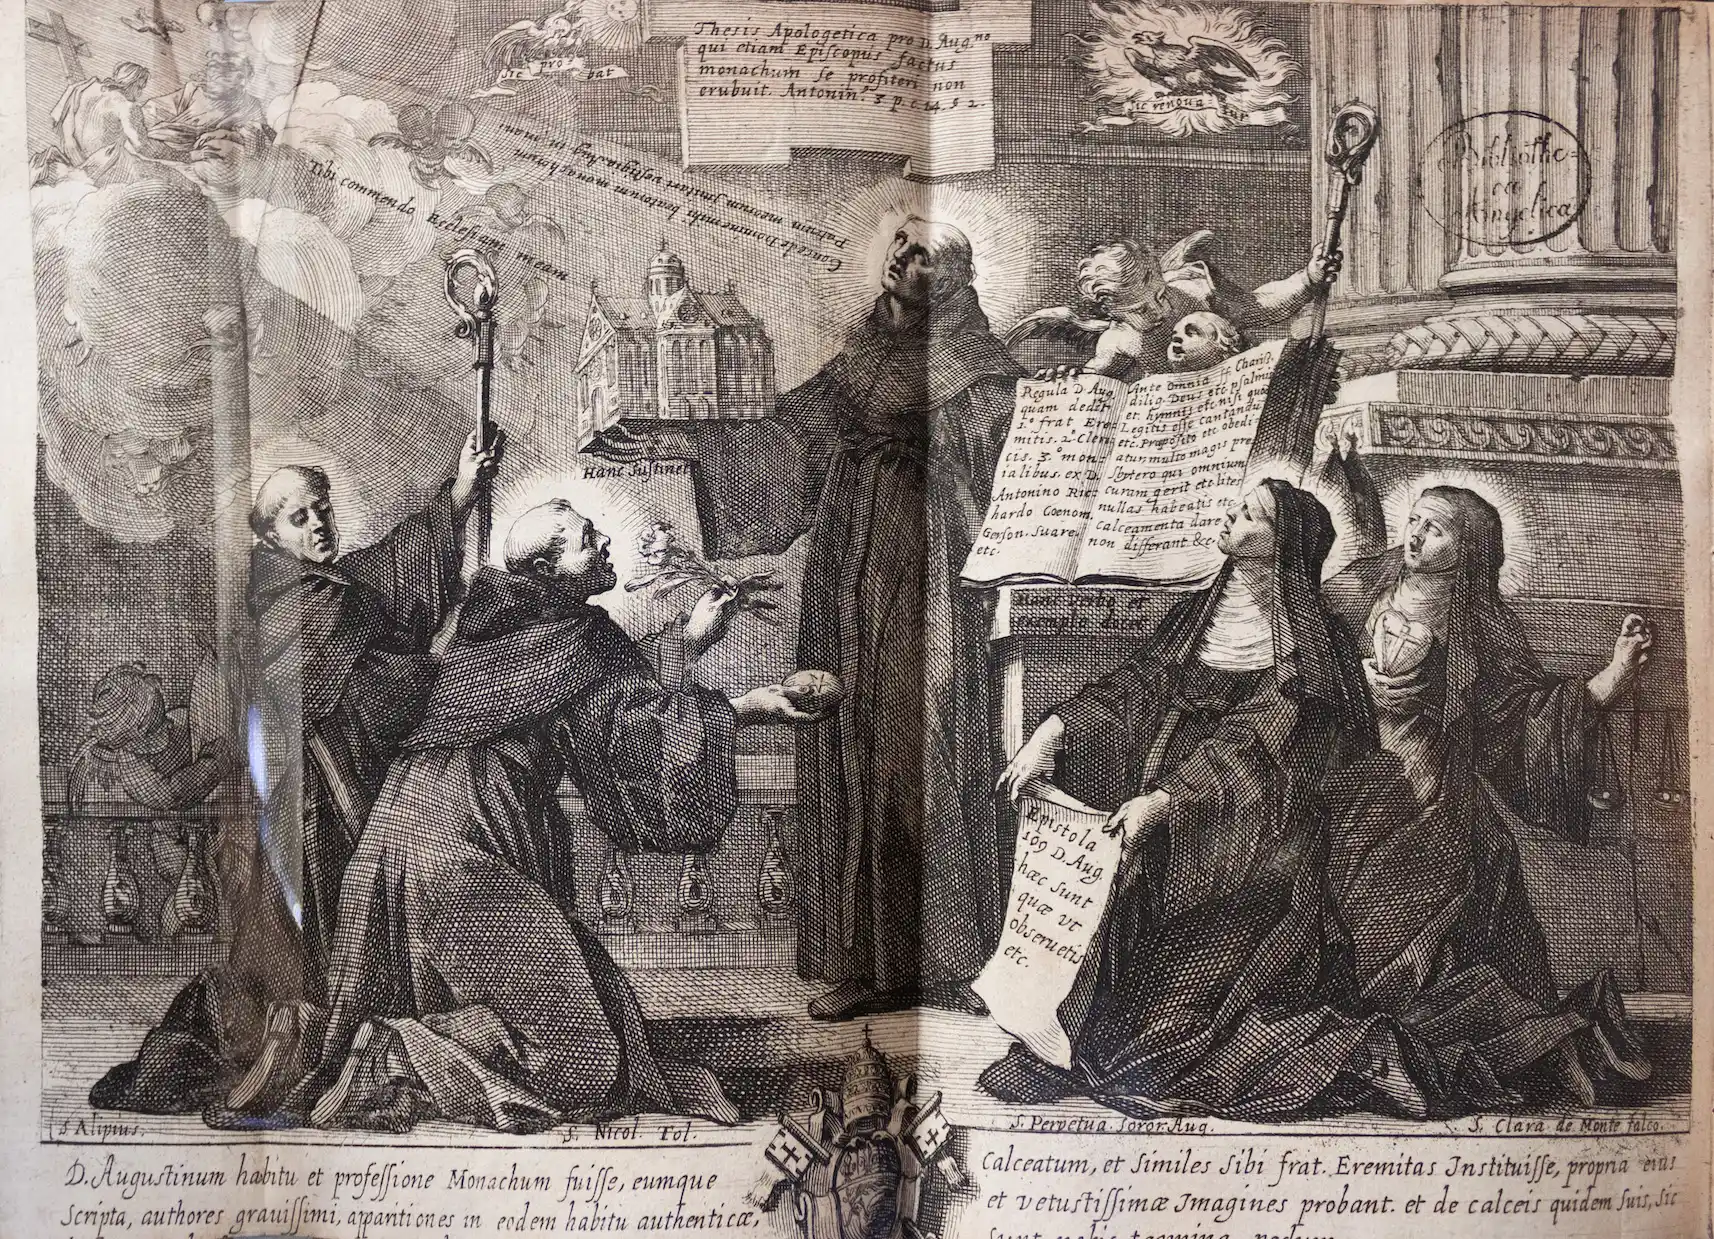 Thesis Apologetica pro D. Aug.no
qui etiam Episcopus factus
monachum se profiteri non
erubuit. Antonin.s 3 p. c. 14 § 2.
sic pro bat
sic renova tur
Bibliothe=
ca
Angelica
Tibi commendo Ecclesiam meam
Hanc Sustinet
Regula D. Aug.
quam dedit
1.o frat Ere=
mitis. 2.o Cleri
cis. 3.o mon=
ialibus. ex D.
Antonino Ric=
hardo Coenom.
Gerson. Suare.
etc.
Ante omnia ff Chariss.
dilig. Deus etc psalmis
et hymnis etc nisi quod
Legitis esse cantandū
etc. Præposito etc obedi
atur multo magis pre
sbytero qui omnium
curam gerit etc lites
nullas habeatis etc
calceamenta dare
non differant &c.
exemplo docet
Epistola
109 D. Aug.
hæc sunt
quæ vt
obseruetis
etc.
S Alipius.
S. Nicol. Tol.
S. Perpetua Soror. Aug.
S. Clara de Monte falco.
D. Augustinum habitu et professione Monachum fuisse, eumque
Scripta, authores grauissimi, apparitiones in eodem habitu authenticæ,
Calceatum, et Similes Sibi frat. Eremitas Instituisse, propria eius
et vetustissimæ Imagines probant. et de calceis quidem suis, sic